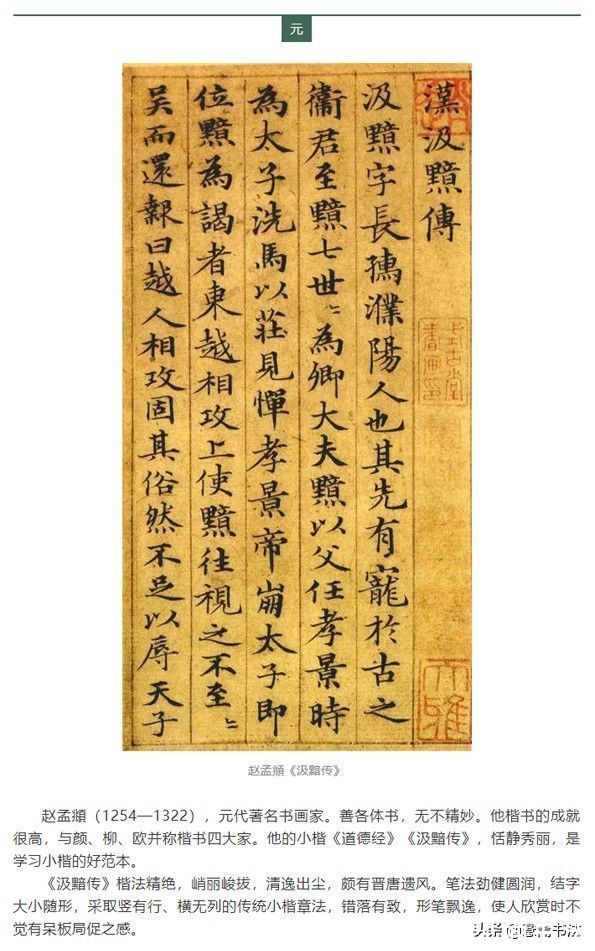 元
漢汲黯傳
汲黯字長孺濮陽人也其先有寵於古之
衛君至黯七世〻為卿大夫黯以父任孝景時
為太子洗馬以莊見憚孝景帝崩太子即
位黯為謁者東越相攻上使黯往視之不至〻
吴而還報曰越人相攻固其俗然不足以辱天子
大雅
赵孟頫《汲黯传》
赵孟頫（1254—1322），元代著名书画家。善各体书，无不精妙。他楷书的成就
很高，与颜、柳、欧并称楷书四大家。他的小楷《道德经》《汲黯传》，恬静秀丽，是
学习小楷的好范本。
《汲黯传》楷法精绝，峭丽峻拔，清逸出尘，颇有晋唐遗风。笔法劲健圆润，结字
大小随形，采取竖有行、横无列的传统小楷章法，错落有致，形笔飘逸，使人欣赏时不
觉有呆板局促之感。